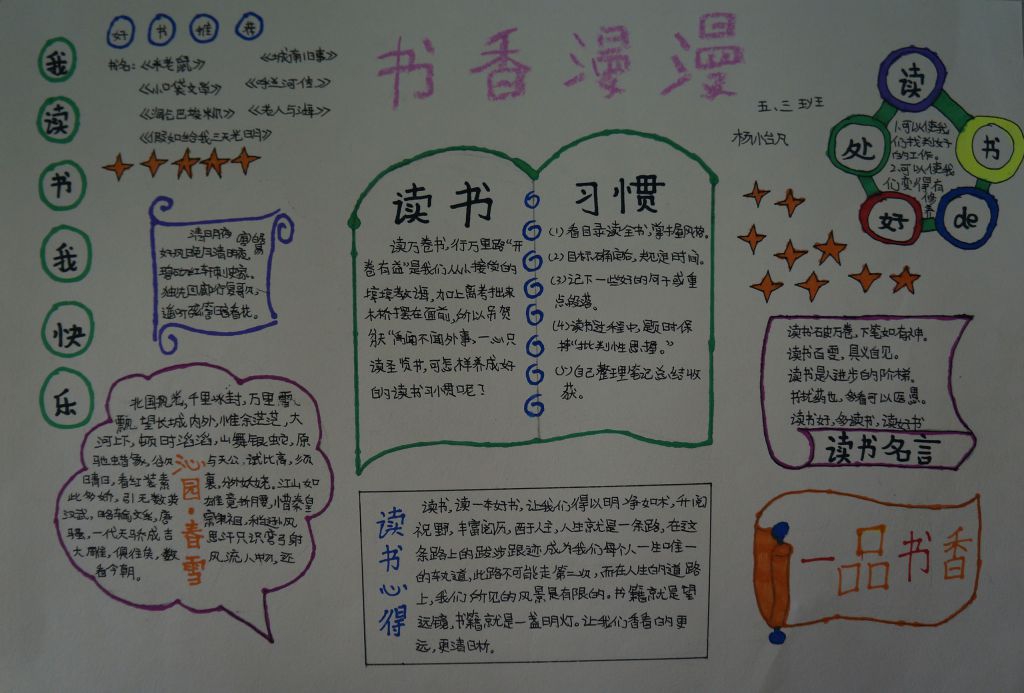 书香漫漫
我读书我快乐
好书推荐
书名：《米老鼠》 《城南旧事》
《小口袋文学》 《呼兰河传》
《淘气包埃米尔》 《老人与海》
《假如给我三天光明》
五、三班
杨小台凡
读书好处
de
1.可以使我
们找到好
的工作。
2.可以使我
们变得有
修养
清明夜
白居易
好风胧月清明夜，
碧砌红轩刺史家。
独绕回廊行复歇，
遥听弦管暗看花。
读书
读万卷书，行万里路“开
卷有益”是我们从小接受的
谆谆教诲，加上高考独来
木桥摆在面前，所以吊贺
朕“两闻不闻外事，一心只
读圣贤书，可怎样养成好
的读书习惯呢？
习惯
(1)看目录读全书，掌握风格。
(2)目标确定，规定时间。
(3)记下一些好的句子或重
点段落。
(4)读书过程中，题目保
持“批判性思想。”
(5)自己整理笔记总结收
获。
读书破万卷，下笔如有神。
读书百变，具义自见。
读书是人进步的阶梯。
书犹药也，多看可以医愚。
读书好，多读书，读好书
读书名言
沁园·春雪
北国风光，千里冰封，万里雪
飘，望长城内外，惟余茫茫，大
河上下，顿时滔滔，山舞银蛇，原
驰蜡象，欲与天公，试比高，须
晴日，看红装素裹，分外妖娆。江山如
此多娇，引无数英雄竞折腰，惜秦皇
汉武，略输文采，唐宗宋祖，稍逊风
骚，一代天骄，成吉思汗只识弯弓射
大雕，俱往矣，数风流人物，还
看今朝。
读书心得
读书，读一本好书，让我们得以明净如水，开阔
视野，丰富阅历，西于人生，人生就是一条路，在这
条路上的跋涉跟迹成为我们每个人一生唯一
的轨道，此路不可能走第二次，而在人生的道路
上，我们所见的风景是有限的。书籍就是望
远镜，书籍就是一盏明灯。让我们看看的更
远，更清日析。
一品书香